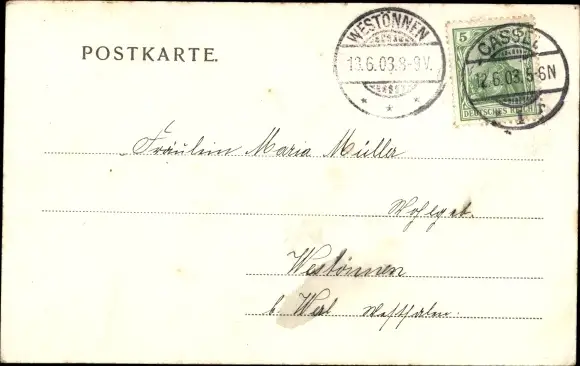 POSTKARTE.
WESTÖNNEN
13.6.03.8-9V.
* * *
CASSEL
12.6.03.5-6N
1
5
DEUTSCHES REICH
Fräulein Maria Müller
Wohlgeb.
Westönnen
b. Werl Westfalen.